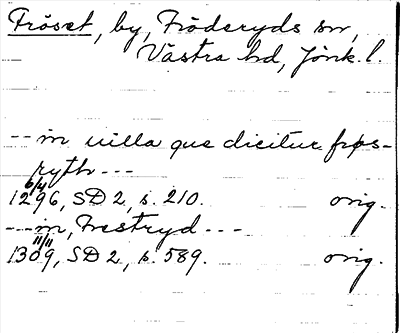 Fröset, by, Fröderyds sn,
Västra hd, Jönk. l.
--- in uilla que dicitur frøs-
ryth ---
6/4
1296, SD 2, s. 210. orig.
--- in, Frestryd ---
11/11
1309, SD 2, s. 589. orig.